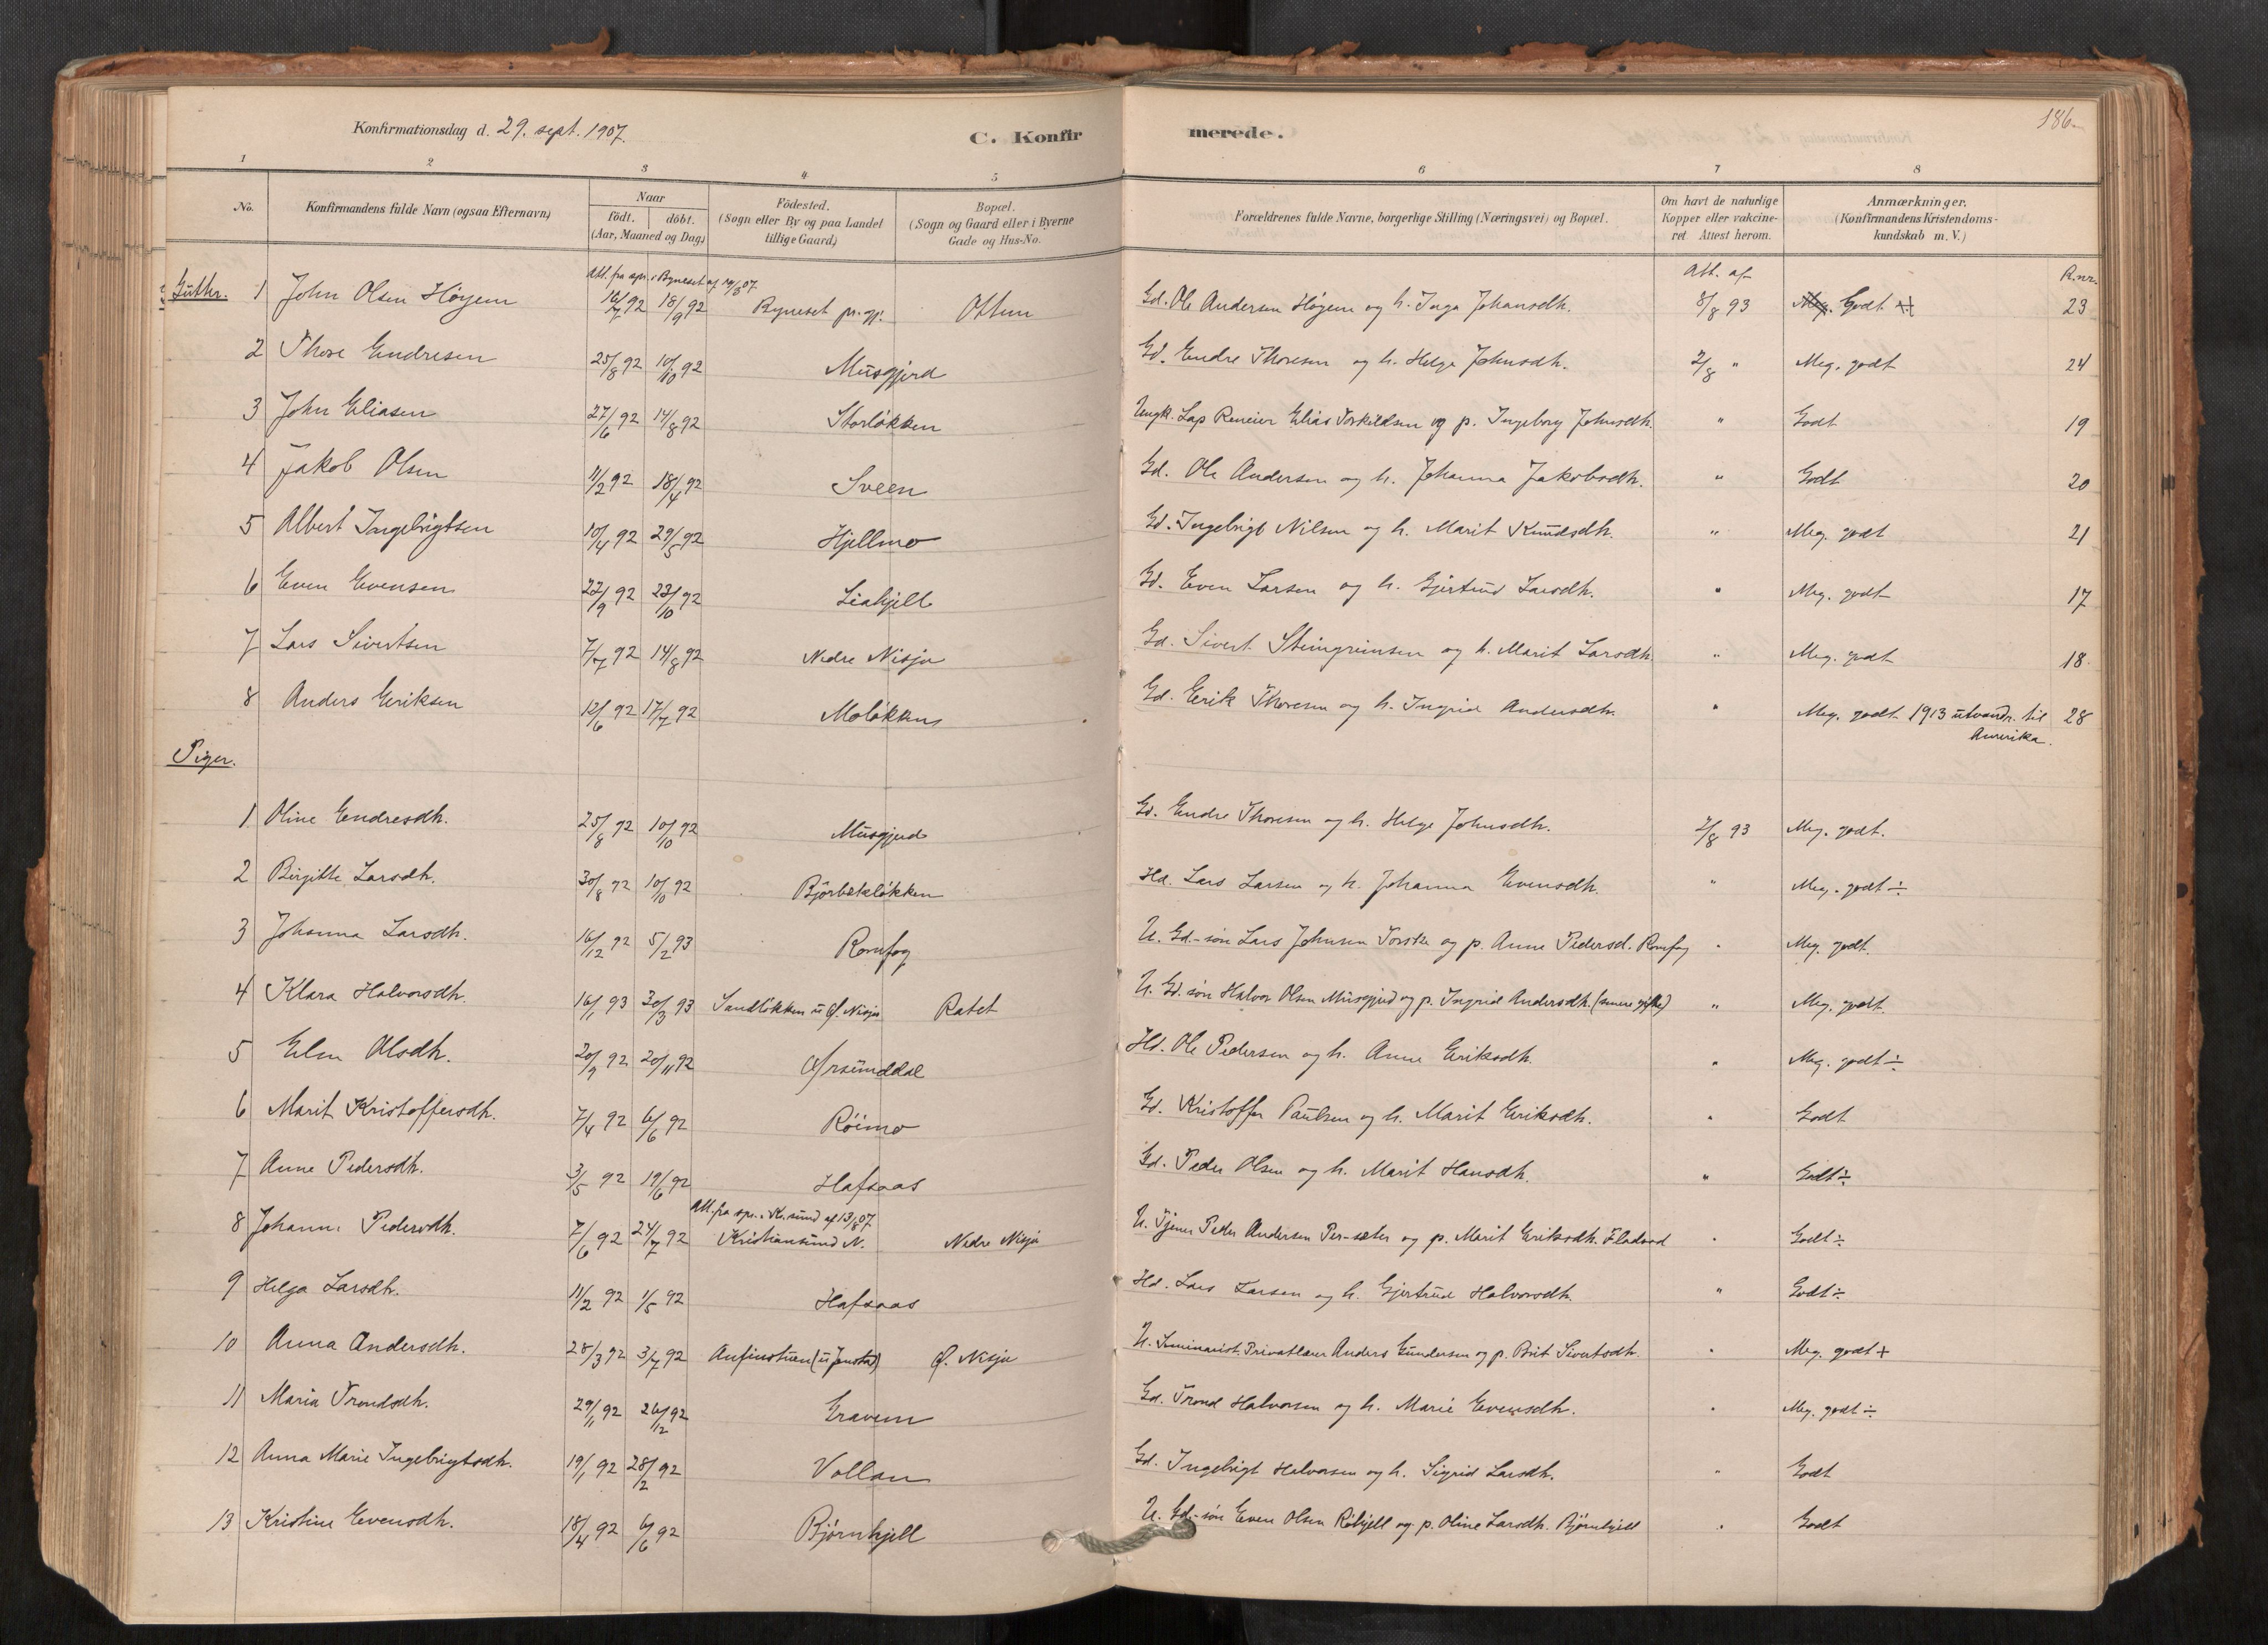 Konfirmationsdag d. 29. sept. 1907.
C. Konfir
merede.
186.
1 2 3 4 5 6 7 8
No.
Konfirmandens fulde Navn (ogsaa Efternavn)
Naar
födt. döbt.
(Aar, Maaned og Dag)
Födested.
(Sogn eller By og paa Landet
tillige Gaard)
Bopæl.
(Sogn og Gaard eller i Byerne
Gade og Hus-No.
Forældrenes fulde Navne, borgerlige Stilling (Næringsvei) og Bopæl.
Om havt de naturlige
Kopper eller vakcine-
ret Attest herom.
Anmærkninger.
(Konfirmandens Kristendoms-
kundskab m. V.)
Att. fra spr. i Byneset af 07.
Att. af
R.nr.
Gutter. 1 John Olsen Höyem 92 18/9 92 Byneset pr.gj. Ottem Gd. Ole Andersen Höyem og h. Inga Johansdh. 8/8 93 Godt 23
2 Thore Endresen 25/8 92 10/10 92 Musgjerd Gd. Endre Thoresen og h. Helge Johnsdh. 2/8 " Meg. godt 24
3 John Eliasen 27/6 92 14/8 92 Storløkken Ungk. Lap Reneier Elias Torkildsen og p. Ingeborg Johnsdh. " Godt 19
4 Jakob Olsen 11/2 92 18/4 92 Sveen Gd. Ole Andersen og h. Johanna Jakobsdh. " Godt 20
5 Albert Ingebrigtsen 10/4 92 29/5 92 Hjellmo Gd. Ingebrigt Nilsen og h. Marit Knudsdh. " Meg. godt 21
6 Even Evensen 22/9 92 23/10 92 Liahjell Gd. Even Larsen og h. Gjertrud Larsdh. " Meg. godt 17
7 Lars Sivertsen 7/7 92 14/8 92 Nedre Nisja Gd. Sivert Steingrimsen og h. Marit Larsdh. " Meg. godt 18
8 Anders Eriksen 12/6 92 17/7 92 Moløkken Gd. Erik Thoresen og h. Ingrid Andersdh. " Meg. godt 1913 utvandr. til 28
Amerika.
Piger.
1 Oline Endresdh. 25/8 92 10/10 92 Musgjerd Gd. Endre Thoresen og h. Helge Johnsdh. 2/8 93 Meg. godt.
2 Birgitte Larsdh. 30/8 92 10/10 92 Bjørbekløkken Hd. Lars Larsen og h. Johanna Evensdh. " Meg. godt ÷
3 Johanna Larsdh. 16/12 92 5/2 93 Romfog U. Gd.-søn Lars Johnsen Torske og p. Anne Pedersd. Romfog " Meg. godt.
4 Klara Halvorsdh. 16/1 93 30/3 93 Sandløkken u. Ø. Nisja Ratet U. Gd. søn Halvor Olsen Musgjerd og p. Ingrid Andersdh. (senere gifte) " Meg. godt.
5 Elen Olsdh. 20/9 92 20/11 92 Ørsunddal Hd. Ole Pedersen og h. Anne Eriksdh. " Meg. godt ÷
6 Marit Kristoffersdh. 7/4 92 6/6 92 Röimo Gd. Kristoffer Paulsen og h. Marit Eriksdh. " Godt
7 Anne Pedersdh. 3/5 92 19/6 92 Hafsaas Gd. Peder Olsen og h. Marit Hansdh. " Godt ÷
Att. fra spr. i Kr.sund af 13/8 07.
8 Johanne Pedersdh. 7/6 92 24/7 92 Kristiansund N. Nedre Nisja U. Tjener Peder Andersen Per-sæter og p. Marit Eriksdh. Fladvad " Godt ÷
9 Helga Larsdh. 11/2 92 1/5 92 Hafsaas Hd. Lars Larsen og h. Gjertrud Halvorsdh. " Godt ÷
10 Anna Andersdh. 28/3 92 3/7 92 Anfinstuen (u. Jenstad) Ø. Nisja U. Seminarist. Privatlærer Anders Gundersen og p. Brit Sivertsdh. " Meg. godt +
11 Maria Trondsdh. 29/11 92 26/12 92 Gravem Gd. Trond Halvorsen og h. Marie Evensdh. " Meg. godt ÷
12 Anna Marie Ingebrigtsdh. 19/1 92 28/2 92 Vollan Gd. Ingebrigt Halvorsen og h. Sigrid Larsdh. " Godt
13 Kristine Evensdh. 18/4 92 6/6 92 Bjørnhjell U. Gd.-søn Even Olsen Röhjell og p. Oline Larsdh. Bjørnhjell " Godt